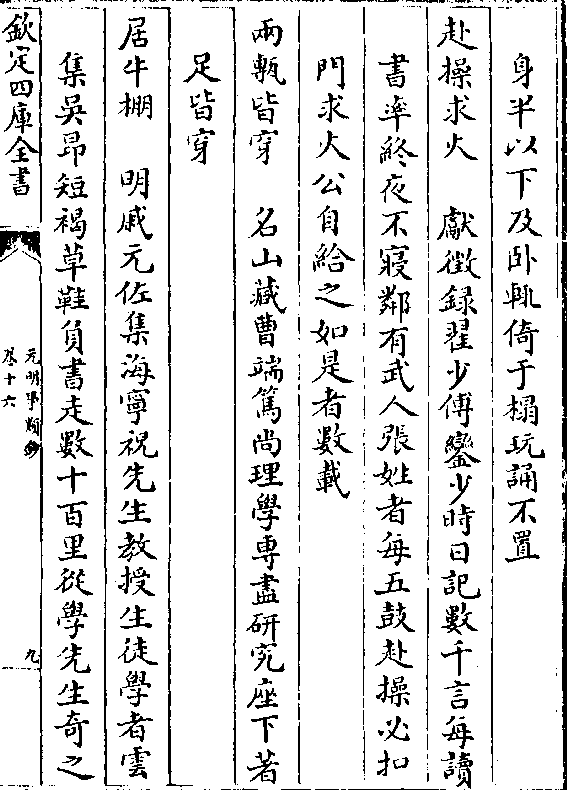 身半以下及卧輒倚于榻玩誦不置
赴操求火　獻徴録翟少傅鑾少時日記數千言每讀
書率終夜不寢鄰有武人張姓者每五鼓赴操必扣
門求火公自給之如是者數載
兩甎皆穿　名山藏曹端篤尚理學専盡研究座下著
足皆穿
居牛棚　明戚元佐集海寧祝先生教授生徒學者雲
集吳昂短褐草鞋負書走數十百里從學先生奇之
欽定四庫全書
元明事類鈔
卷十六
九